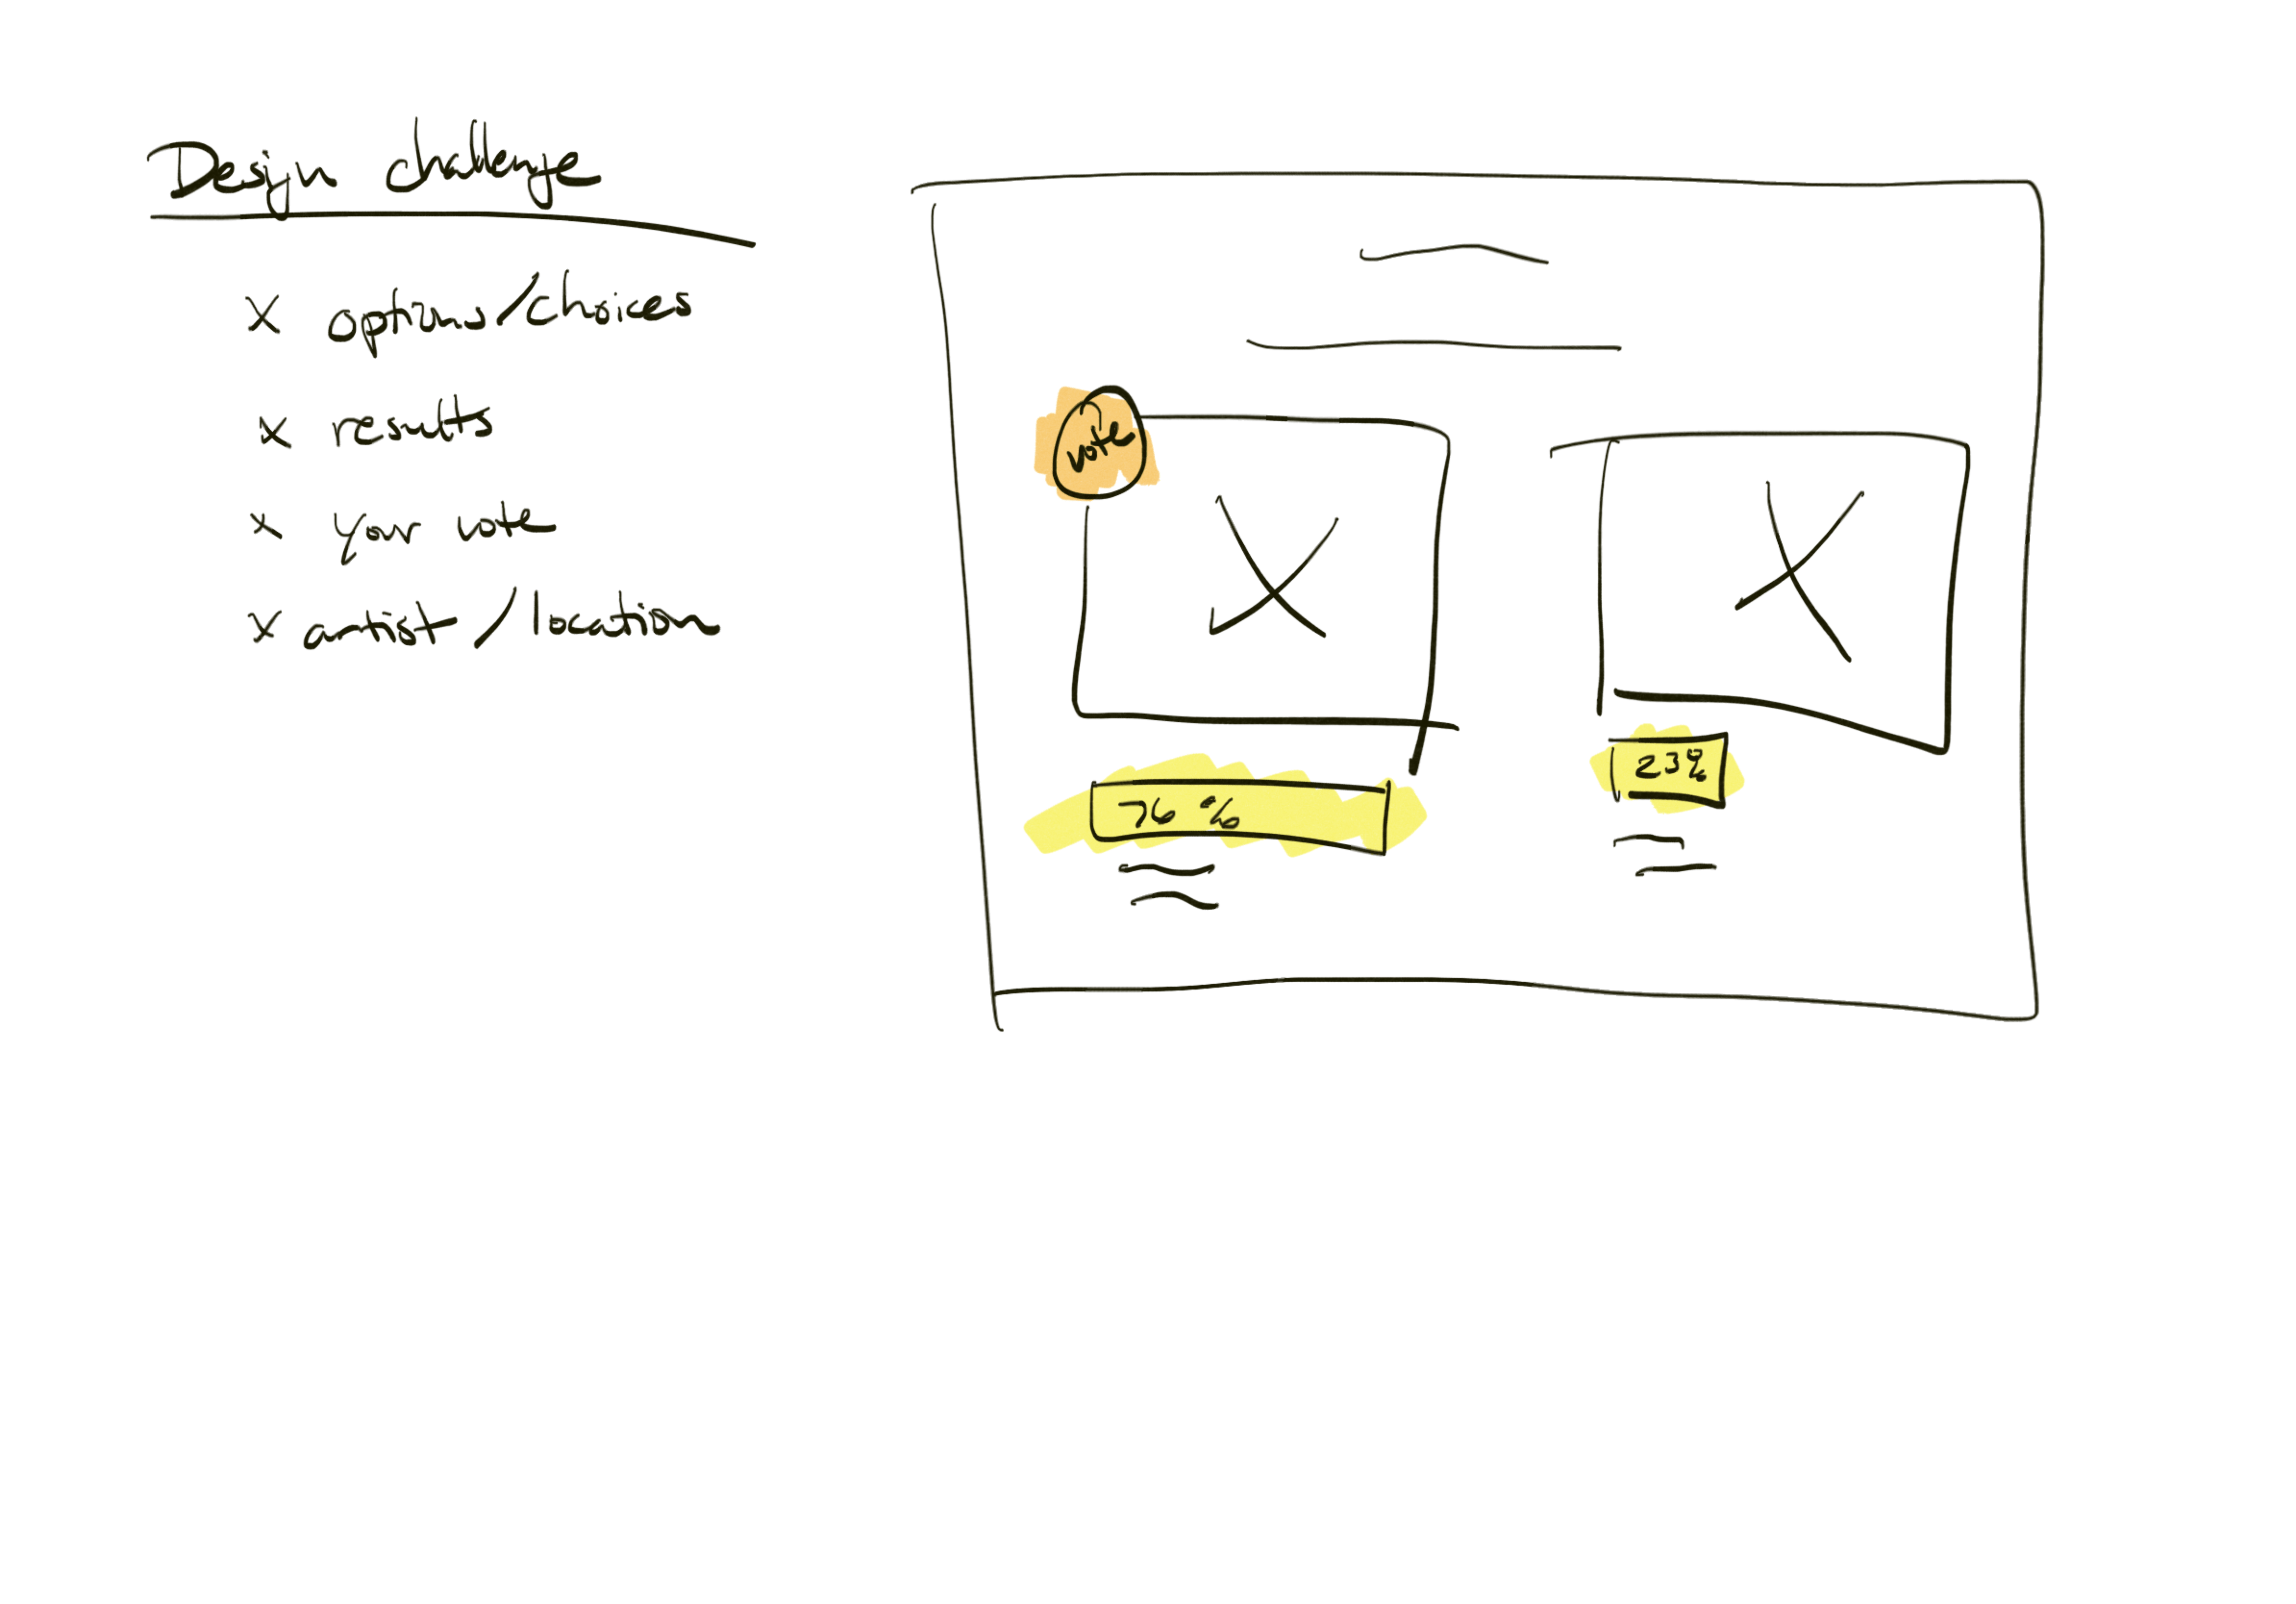 Design challenge
x options/choices
x results
x your vote
x artist/location
vote
76%
23%